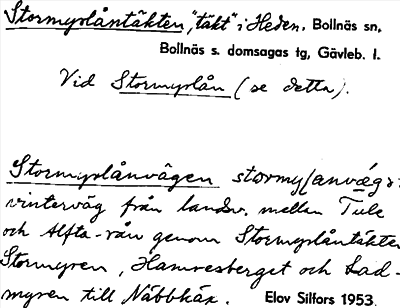 Stormyslåntäkten, "täkt" i Heden. Bollnäs sn,
Bollnäs s. domsagas tg, Gävleb. l.
Vid Stormyslån (se detta).
Stormyslånvägen stormy(anvæg
vinterväg från landsv. mellan Tule
och Alfta-rån genom Stormyslåntäkten
Stormyren, Hamresberget och Lad-
myren till Näbbkäx. Elov Silfors 1953.